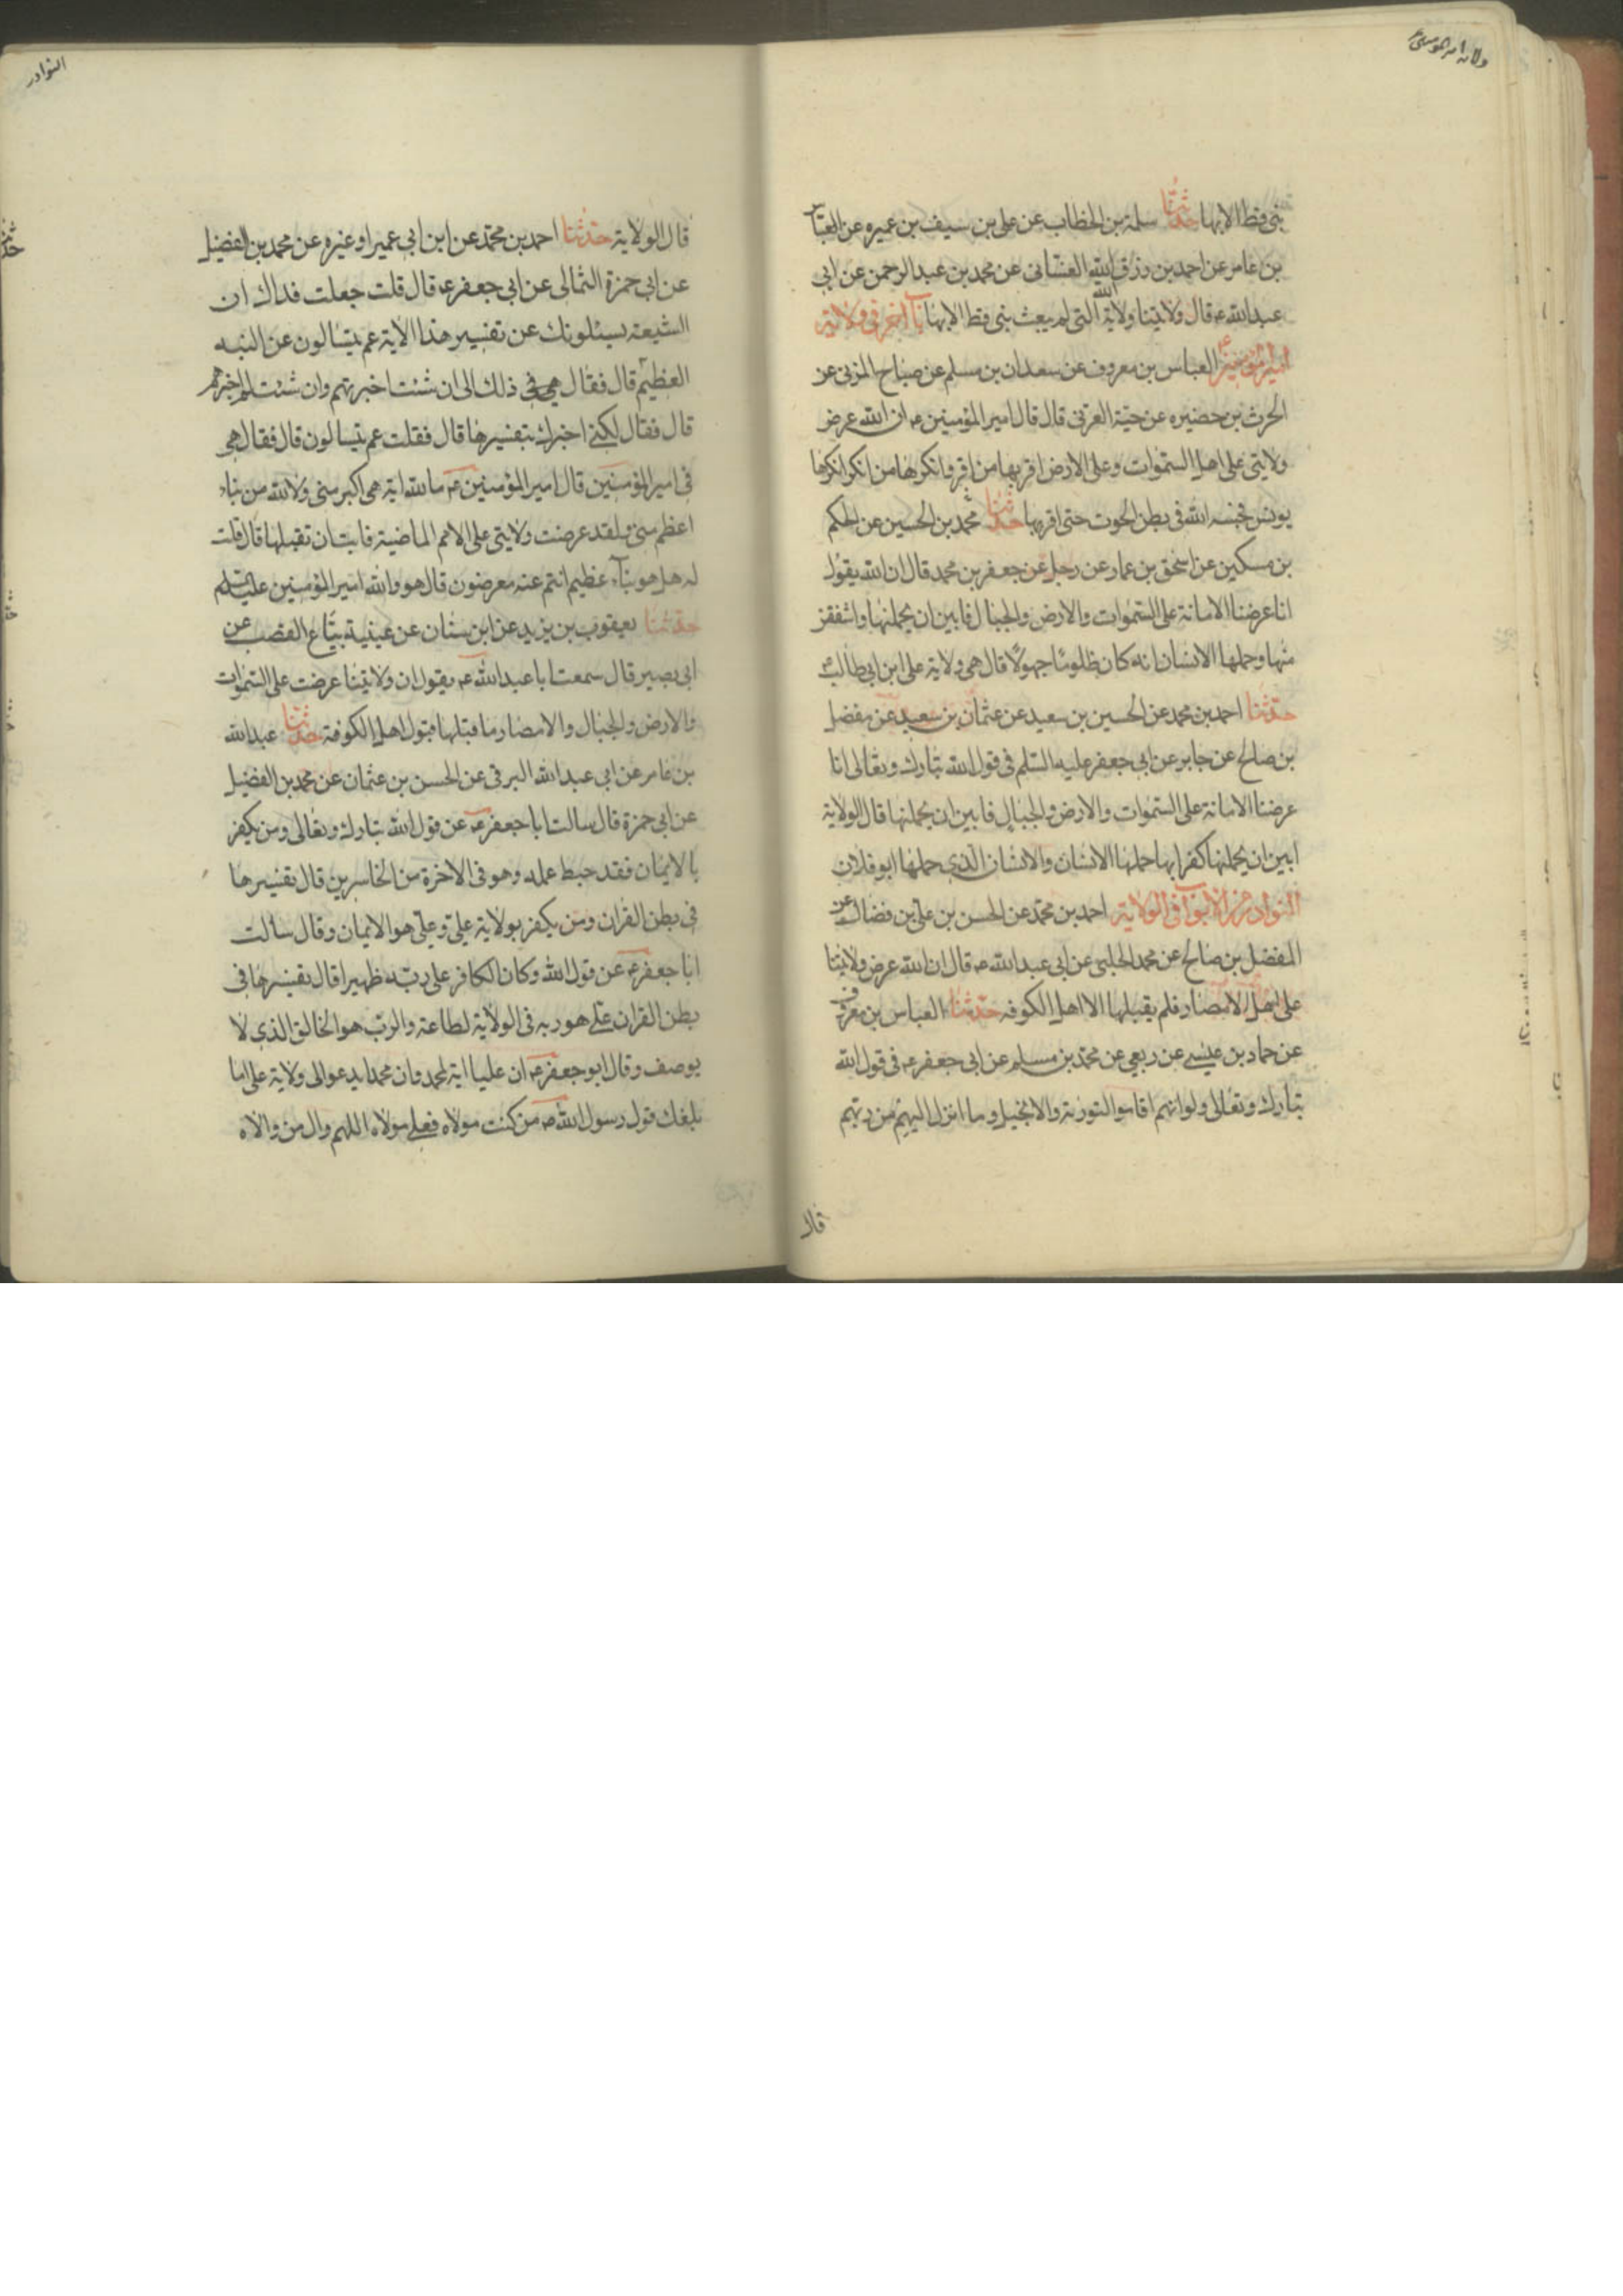 ولاية امير المؤمنين
نبى قط الا بها حدثنا سلمة بن الخطاب عن على بن سيف بن عميره عن العباس
بن عامر عن احمد بن رزق الله الغشانى عن محمد بن عبد الرحمن عن ابى
عبد الله ع قال ولايتنا ولاية الله التى لم يبعث نبى قط الا بها باب اخر فى ولاية
امير المؤمنين العباس بن معروف عن سعدان بن مسلم عن صباح المزنى عن
الحرث بن حضيره عن حبة العرنى قال قال امير المؤمنين ع ان الله عرض
ولايتى على اهل السموات وعلى الارض اقر بها من اقر وانكرها من انكر انكرها
يونس فحبسه الله فى بطن الحوت حتى اقر بها حدثنا محمد بن الحسين عن الحكم
بن مسكين عن اسحق بن عمار عن رجل عن جعفر بن محمد قال ان الله يقول
انا عرضنا الامانة على السموات والارض والجبال فابين ان يحملنها واشفقن
منها وحملها الانسان انه كان ظلوما جهولا قال هى ولاية على ابن ابى طالب ع
حدثنا احمد بن محمد عن الحسين بن سعيد عن عثمان بن سعيد عن مفضل
بن صالح عن جابر عن ابى جعفر عليه السلم فى قول الله تبارك وتعالى انا
عرضنا الامانة على السموات والارض والجبال فابين ان يحملنها قال الولاية
ابين ان يحملنها كفرا بها حملها الانسان والانسان الذى حملها ابو فلان
النوادر من الابواب فى الولاية احمد بن محمد عن الحسن بن على بن فضال عن
المفضل بن صالح عن محمد الحلبى عن ابى عبد الله ع قال ان الله عرض ولايتنا
على اهل الامصار فلم يقبلها الا اهل الكوفه حدثنا العباس بن معروف
عن حماد بن عيسى عن ربعى عن محمد بن مسلم عن ابى جعفر ع فى قول الله
تبارك وتعالى ولو انهم اقاموا التورية والانجيل وما انزل اليهم من ربهم
قال
النوادر
قال الولاية حدثنا احمد بن محمد عن ابن ابى عمير او غيره عن محمد بن الفضيل
عن ابى حمزة الثمالى عن ابى جعفر ع قال قلت جعلت فداك ان
الشيعة يسئلونك عن تفسير هذا الاية عم يتسالون عن النبـه
العظيم قال فقال هى فى ذلك الى ان شئت اخبرتهم وان شئت لم اخبرهم
قال فقال لكنى اخبرك بتفسيرها قال فقلت عم يتسالون قال فقال هى
فى امير المؤمنين قال امير المؤمنين ع ما لله اية هى اكبر منى ولا لله من نباء
اعظم منى ولقد عرضت ولايتى على الامم الماضية فابت ان تقبلها قال قلت
له هل هو نباء عظيم انتم عنه معرضون قال هو والله امير المؤمنين عليه السلم
حدثنا يعقوب بن يزيد عن ابن سنان عن عينية بياع القصب عن
ابى بصير قال سمعت ابا عبد الله ع يقول ان ولايتنا عرضت على السموات
والارض والجبال والامصار ما قبلها قبول اهل الكوفة حدثنا عبد الله
بن عامر عن ابى عبد الله البرقى عن الحسن بن عثمان عن محمد بن الفضيل
عن ابى حمزة قال سالت ابا جعفر ع عن قول الله تبارك وتعالى ومن يكفر
بالايمان فقد حبط عمله وهو فى الاخرة من الخاسرين قال تفسيرها
فى بطن القران ومن يكفر بولاية على وعلى هو الايمان وقال سألت
ابا جعفر ع عن قول الله وكان الكافر على ربه ظهيرا قال تفسيرها فى
بطن القران على هو ربه فى الولاية لطاعة والرب هو الخالق الذى لا
يوصف وقال ابو جعفر ع ان عليا اية لمحمد وان محمدا يدعوا الى ولاية على اما
بلغك قول رسول الله ص من كنت مولاه فعلى مولاه اللهم وال من والاه